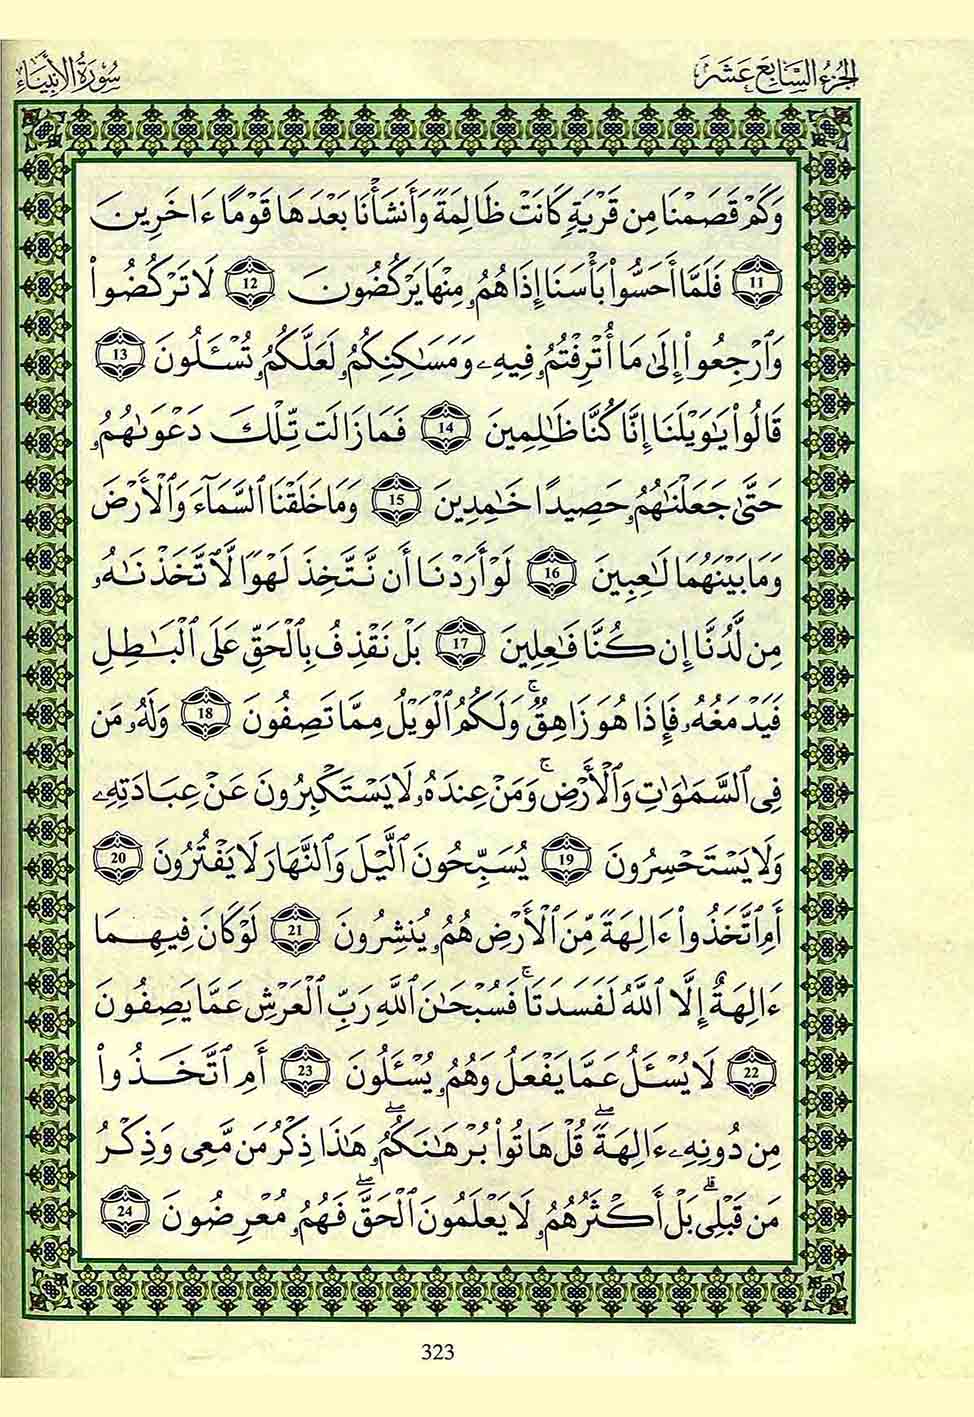 الجزء السابع عشر
سورة الأنبياء
وَكَمْ قَصَمْنَا مِن قَرْيَةٖ كَانَتْ ظَالِمَةٗ وَأَنشَأْنَا بَعْدَهَا قَوْمًا ءَاخَرِينَ
11 فَلَمَّا أَحَسُّواْ بَأْسَنَا إِذَا هُمُۥ مِنْهَا يَرْكُضُونَ 12 لَا تَرْكُضُواْ
وَٱرْجِعُواْ إِلَىٰ مَا أُتْرِفْتُمُۥ فِيهِۦ وَمَسَٰكِنِكُمُۥ لَعَلَّكُمُۥ تُسْـَٔلُونَ 13
قَالُواْ يَٰوَيْلَنَا إِنَّا كُنَّا ظَٰلِمِينَ 14 فَمَا زَالَت تِّلْكَ دَعْوَىٰهُمُۥ
حَتَّىٰ جَعَلْنَٰهُمُۥ حَصِيدًا خَٰمِدِينَ 15 وَمَا خَلَقْنَا ٱلسَّمَآءَ وَٱلْأَرْضَ
وَمَا بَيْنَهُمَا لَٰعِبِينَ 16 لَوْ أَرَدْنَا أَن نَّتَّخِذَ لَهْوٗا لَّٱتَّخَذْنَٰهُۥ
مِن لَّدُنَّا إِن كُنَّا فَٰعِلِينَ 17 بَلْ نَقْذِفُ بِٱلْحَقِّ عَلَى ٱلْبَٰطِلِ
فَيَدْمَغُهُۥ فَإِذَا هُوَ زَاهِقٞۚ وَلَكُمُ ٱلْوَيْلُ مِمَّا تَصِفُونَ 18 وَلَهُۥ مَن
فِي ٱلسَّمَٰوَٰتِ وَٱلْأَرْضِۚ وَمَنْ عِندَهُۥ لَا يَسْتَكْبِرُونَ عَنْ عِبَادَتِهِۦ
وَلَا يَسْتَحْسِرُونَ 19 يُسَبِّحُونَ ٱلَّيْلَ وَٱلنَّهَارَ لَا يَفْتُرُونَ 20
أَمِ ٱتَّخَذُواْ ءَالِهَةٗ مِّنَ ٱلْأَرْضِ هُمُۥ يُنشِرُونَ 21 لَوْ كَانَ فِيهِمَا
ءَالِهَةٌ إِلَّا ٱللَّهُ لَفَسَدَتَاۚ فَسُبْحَٰنَ ٱللَّهِ رَبِّ ٱلْعَرْشِ عَمَّا يَصِفُونَ
22 لَا يُسْـَٔلُ عَمَّا يَفْعَلُ وَهُمُۥ يُسْـَٔلُونَ 23 أَمِ ٱتَّخَذُواْ
مِن دُونِهِۦ ءَالِهَةٗۖ قُلْ هَاتُواْ بُرْهَٰنَكُمُۥۖ هَٰذَا ذِكْرُ مَن مَّعِي وَذِكْرُ
مَن قَبْلِيۗ بَلْ أَكْثَرُهُمُۥ لَا يَعْلَمُونَ ٱلْحَقَّۖ فَهُمُۥ مُعْرِضُونَ 24
323